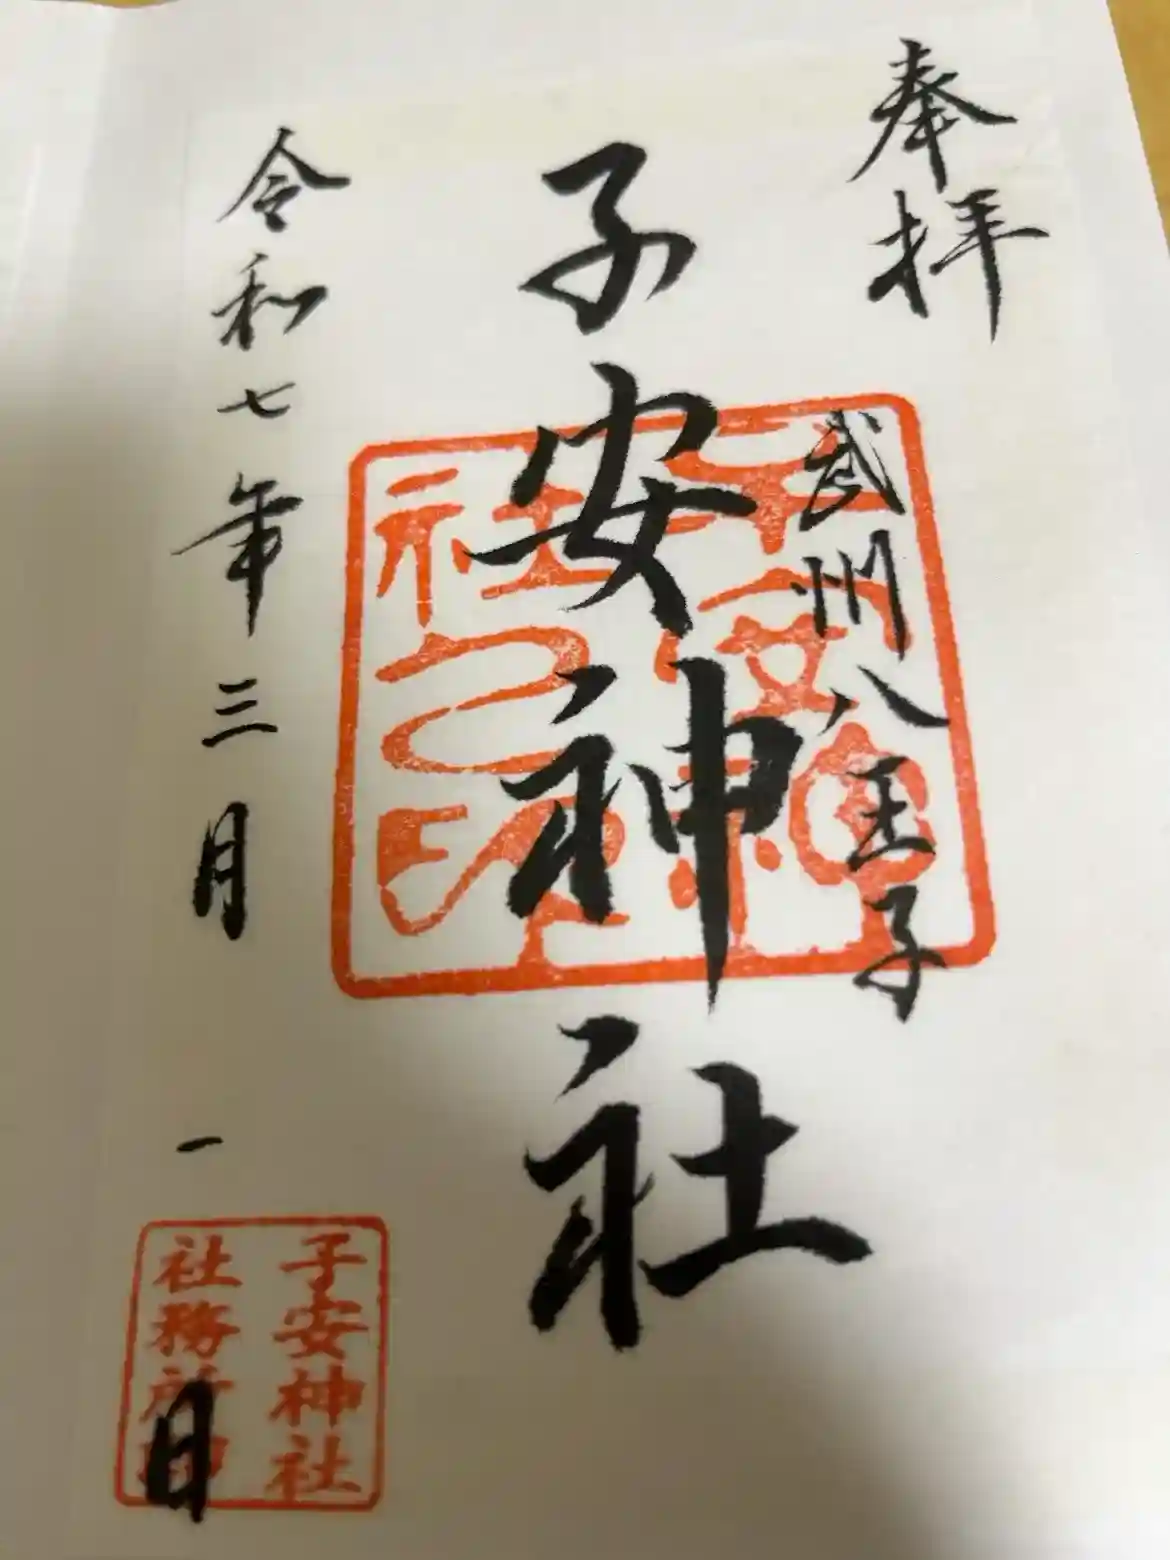 奉拝
武州八王子
子安神社
令和七年三月一日
子安神社
社務所印